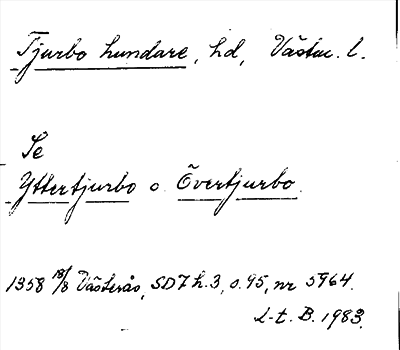 Tjurbo hundare, hd, Västm. l.
Se
Yttertjurbo o. Övertjurbo.
1358 18/8 Västerås, SD 7 h. 3, s. 95, nr 5964.
L-t. B. 1983.